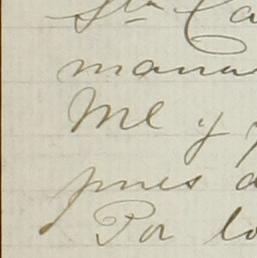 Sta Ca
mana
Me y
pues d
Por lo